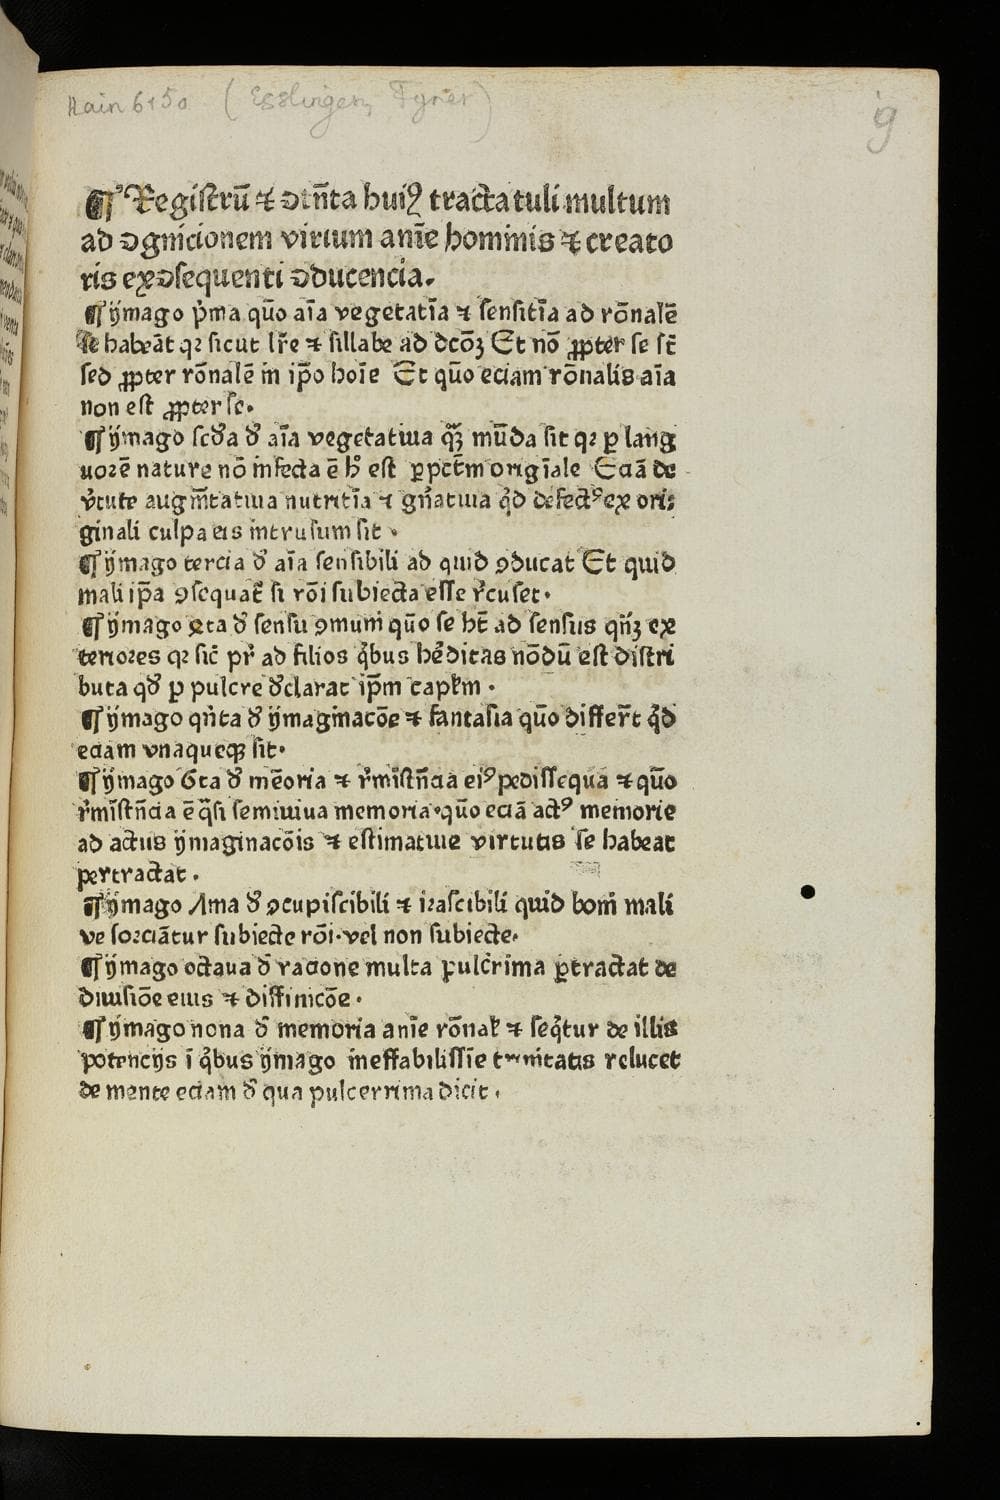 Hain 6150 (Esslingen, Fyner)
g
¶ Registrũ ⁊ ɔtñta huiꝰ tractatuli multum
ad ɔgnicionem virium anīe hominis ⁊ creato
ris ex ɔsequenti ɔducencia.
¶ ijmago p̃ma quō aīa vegetatīa ⁊ sensitīa ad rōnalē
se habeāt qꝛ sicut lr̃e ⁊ sillabe ad dcōꝫ Et nō ꝓpter se st̃
sed ꝓpter rōnalē in ip̄o hoīe Et quō eciam rōnalis aīa
non est ꝓpter se.
¶ ijmago scďa ď aīa vegetatiua qꝫ mūda sit qꝛ ꝑ lang
uorē nature nō infecta ē h̃ est ꝑ pct̄m origīale Eciā de
v̓tute augm̄tatiua nutritīa ⁊ gñatiua qd̓ defectꝰ ex ori⸗
ginali culpa eis intrusum sit .
¶ ijmago tercia ď aīa sensibili ad quid ꝯducat Et quid
mali ip̄a ꝯsequat̃ si rōi subiecta esse r̓cuset.
¶ ijmago 4ta ď sensu ꝯmuni quō se ht̄ ad sensus qñꝫ ex
teriores qꝛ sic̄ pr̃ ad filios q̓bus he̓ditas nōdū est distri
buta qď ꝑ pulcre ďclarat ip̄m capłm .
¶ ijmago qñta ď ijmaginacōe ⁊ fantasia quō differt̃ qd̓
eciam vnaqueqꝫ sit.
¶ ijmago 6ta ď mēoria ⁊ r̓mīstñcia eiꝰ pedissequa ⁊ quō
r̓mīstñcia ē q̄si semiuiua memoria.quō eciā actꝰ memorie
ad actus ijmaginacōis ⁊ estimatiue virtutis se habeat
pertractat .
¶ ijmago Λma ď ꝯcupiscibili ⁊ irascibili quid boni mali
ve sorciātur subiecte rōi.vel non subiecte.
¶ ijmago octaua ď racione multa pulcr̓rima ꝑtractat de
diuisiōe eius ⁊ diffinicōe .
¶ ijmago nona ď memoria anīe rōnał ⁊ seq̓tur de illis
potencijs ī q̓bus ijmago ineffabilissīe trinitatis relucet
de mente eciam ď qua pulcerrima dicit .